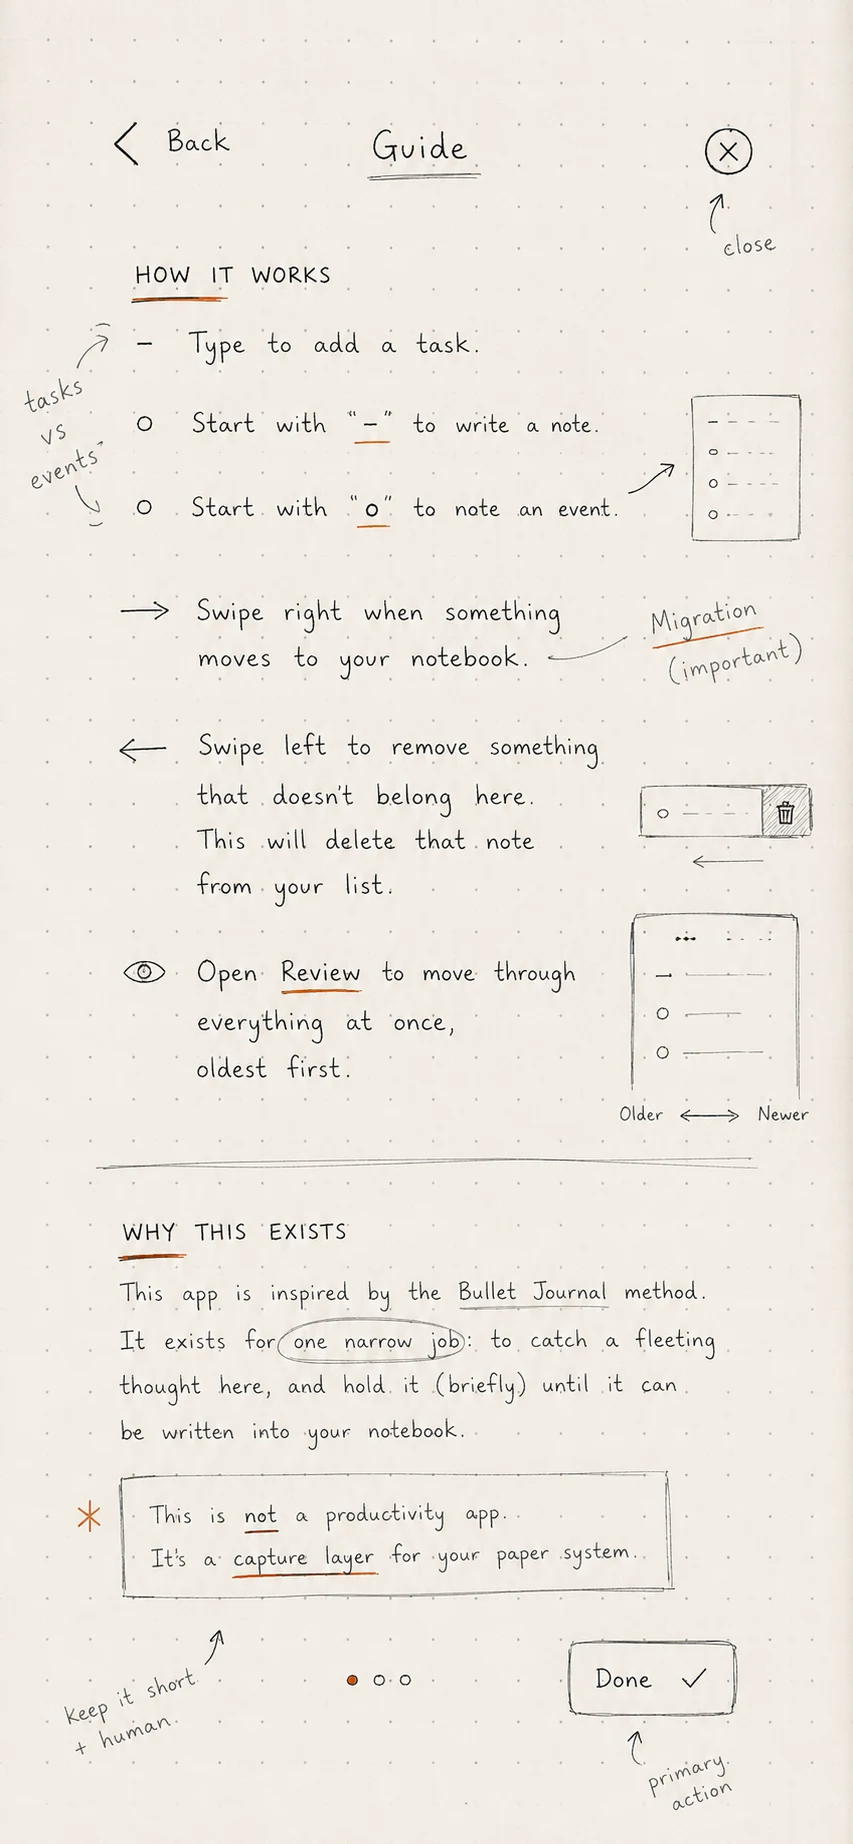 Back
Guide
close
HOW IT WORKS
– Type to add a task.
tasks
vs
events
Start with "–" to write a note.
Start with "o" to note an event.
→ Swipe right when something
moves to your notebook.
Migration
(important)
← Swipe left to remove something
that doesn't belong here.
This will delete that note
from your list.
Open Review to move through
everything at once,
oldest first.
Older ↔ Newer
WHY THIS EXISTS
This app is inspired by the Bullet Journal method.
It exists for one narrow job: to catch a fleeting
thought here, and hold it (briefly) until it can
be written into your notebook.
* This is not a productivity app.
It's a capture layer for your paper system.
Keep it short
+ human.
Done ✓
primary
action